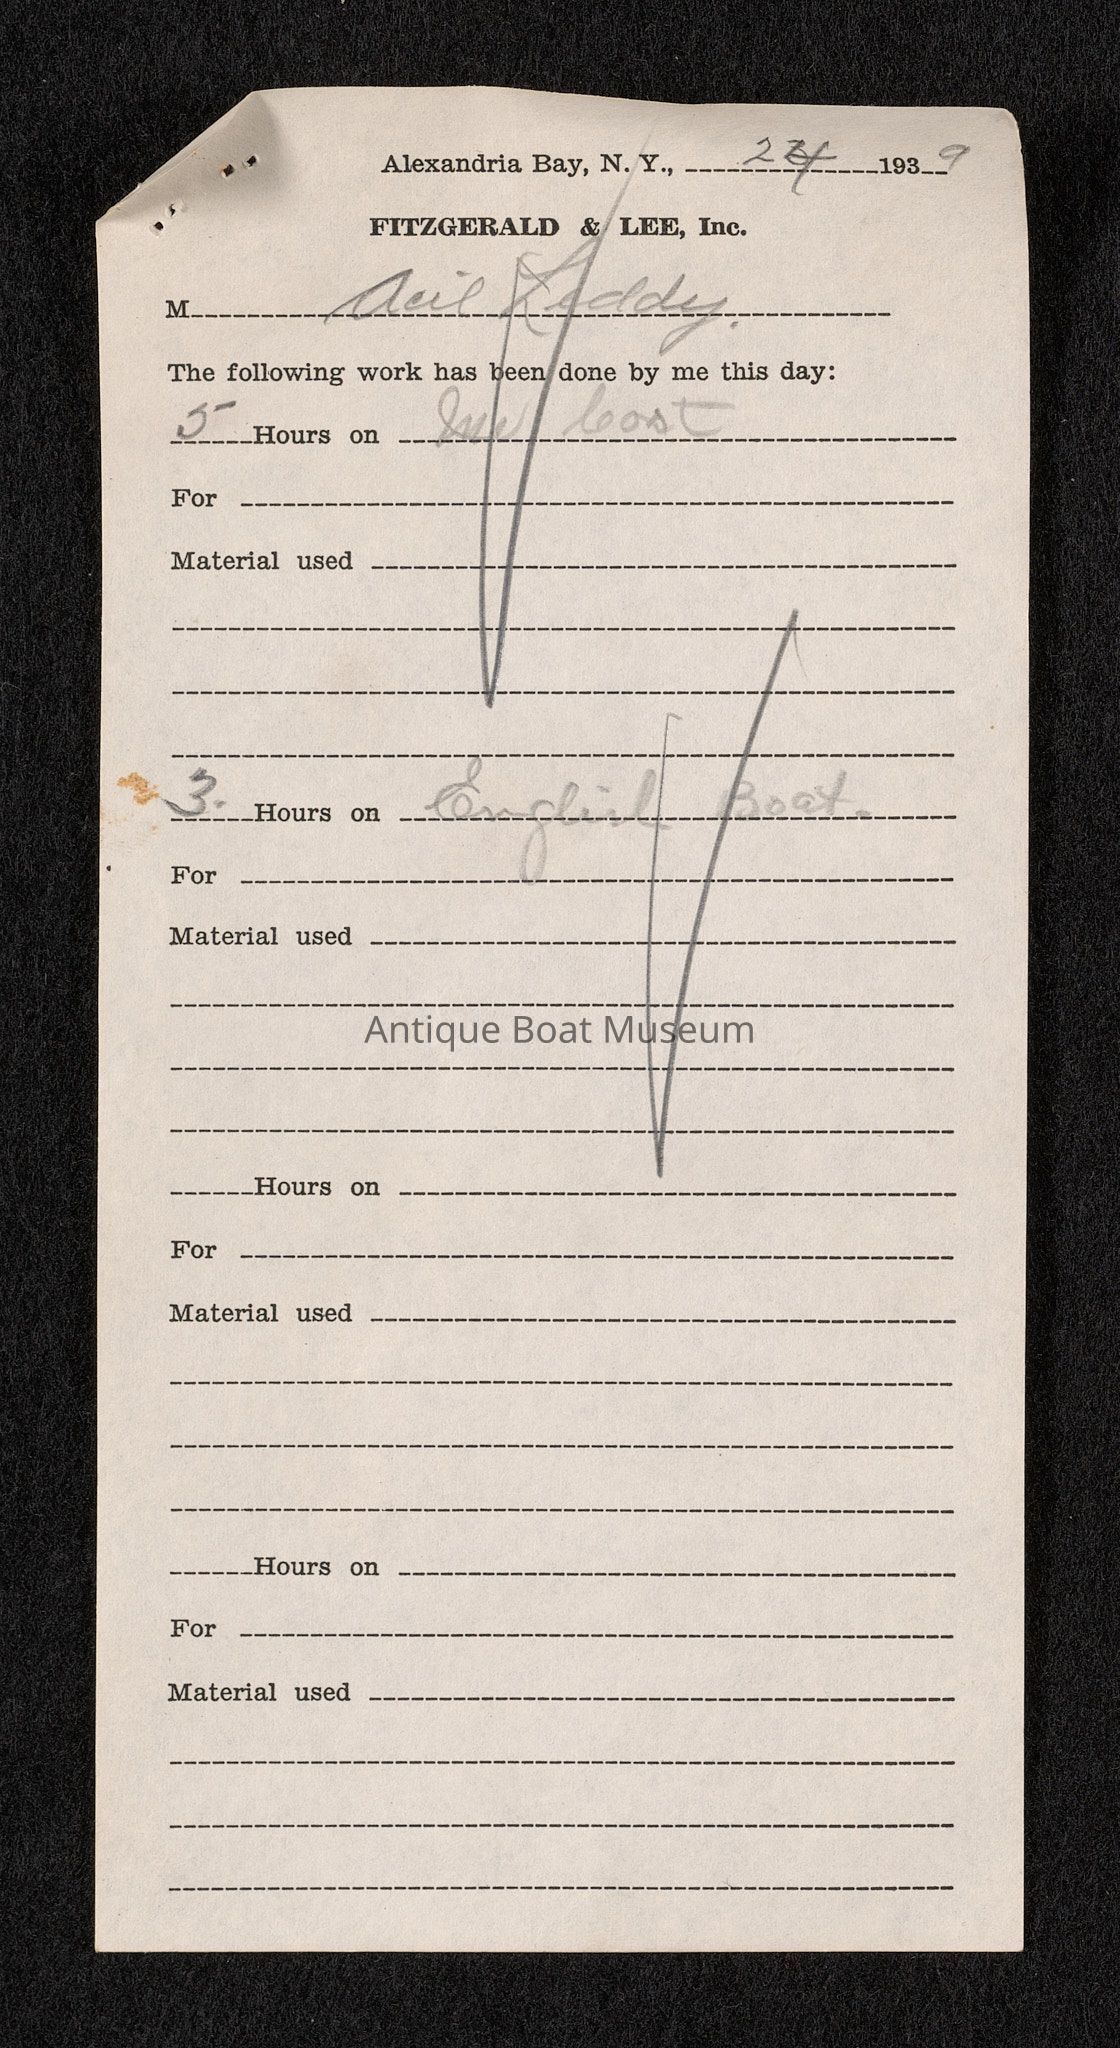 Alexandria Bay, N. Y., 24 1939
FITZGERALD & LEE, Inc.
M Leddy.
The following work has been done by me this day:
5 Hours on Inv Cost
For
Material used
3. Hours on English Boat.
For
Material used
Antique Boat Museum
Hours on
For
Material used
Hours on
For
Material used